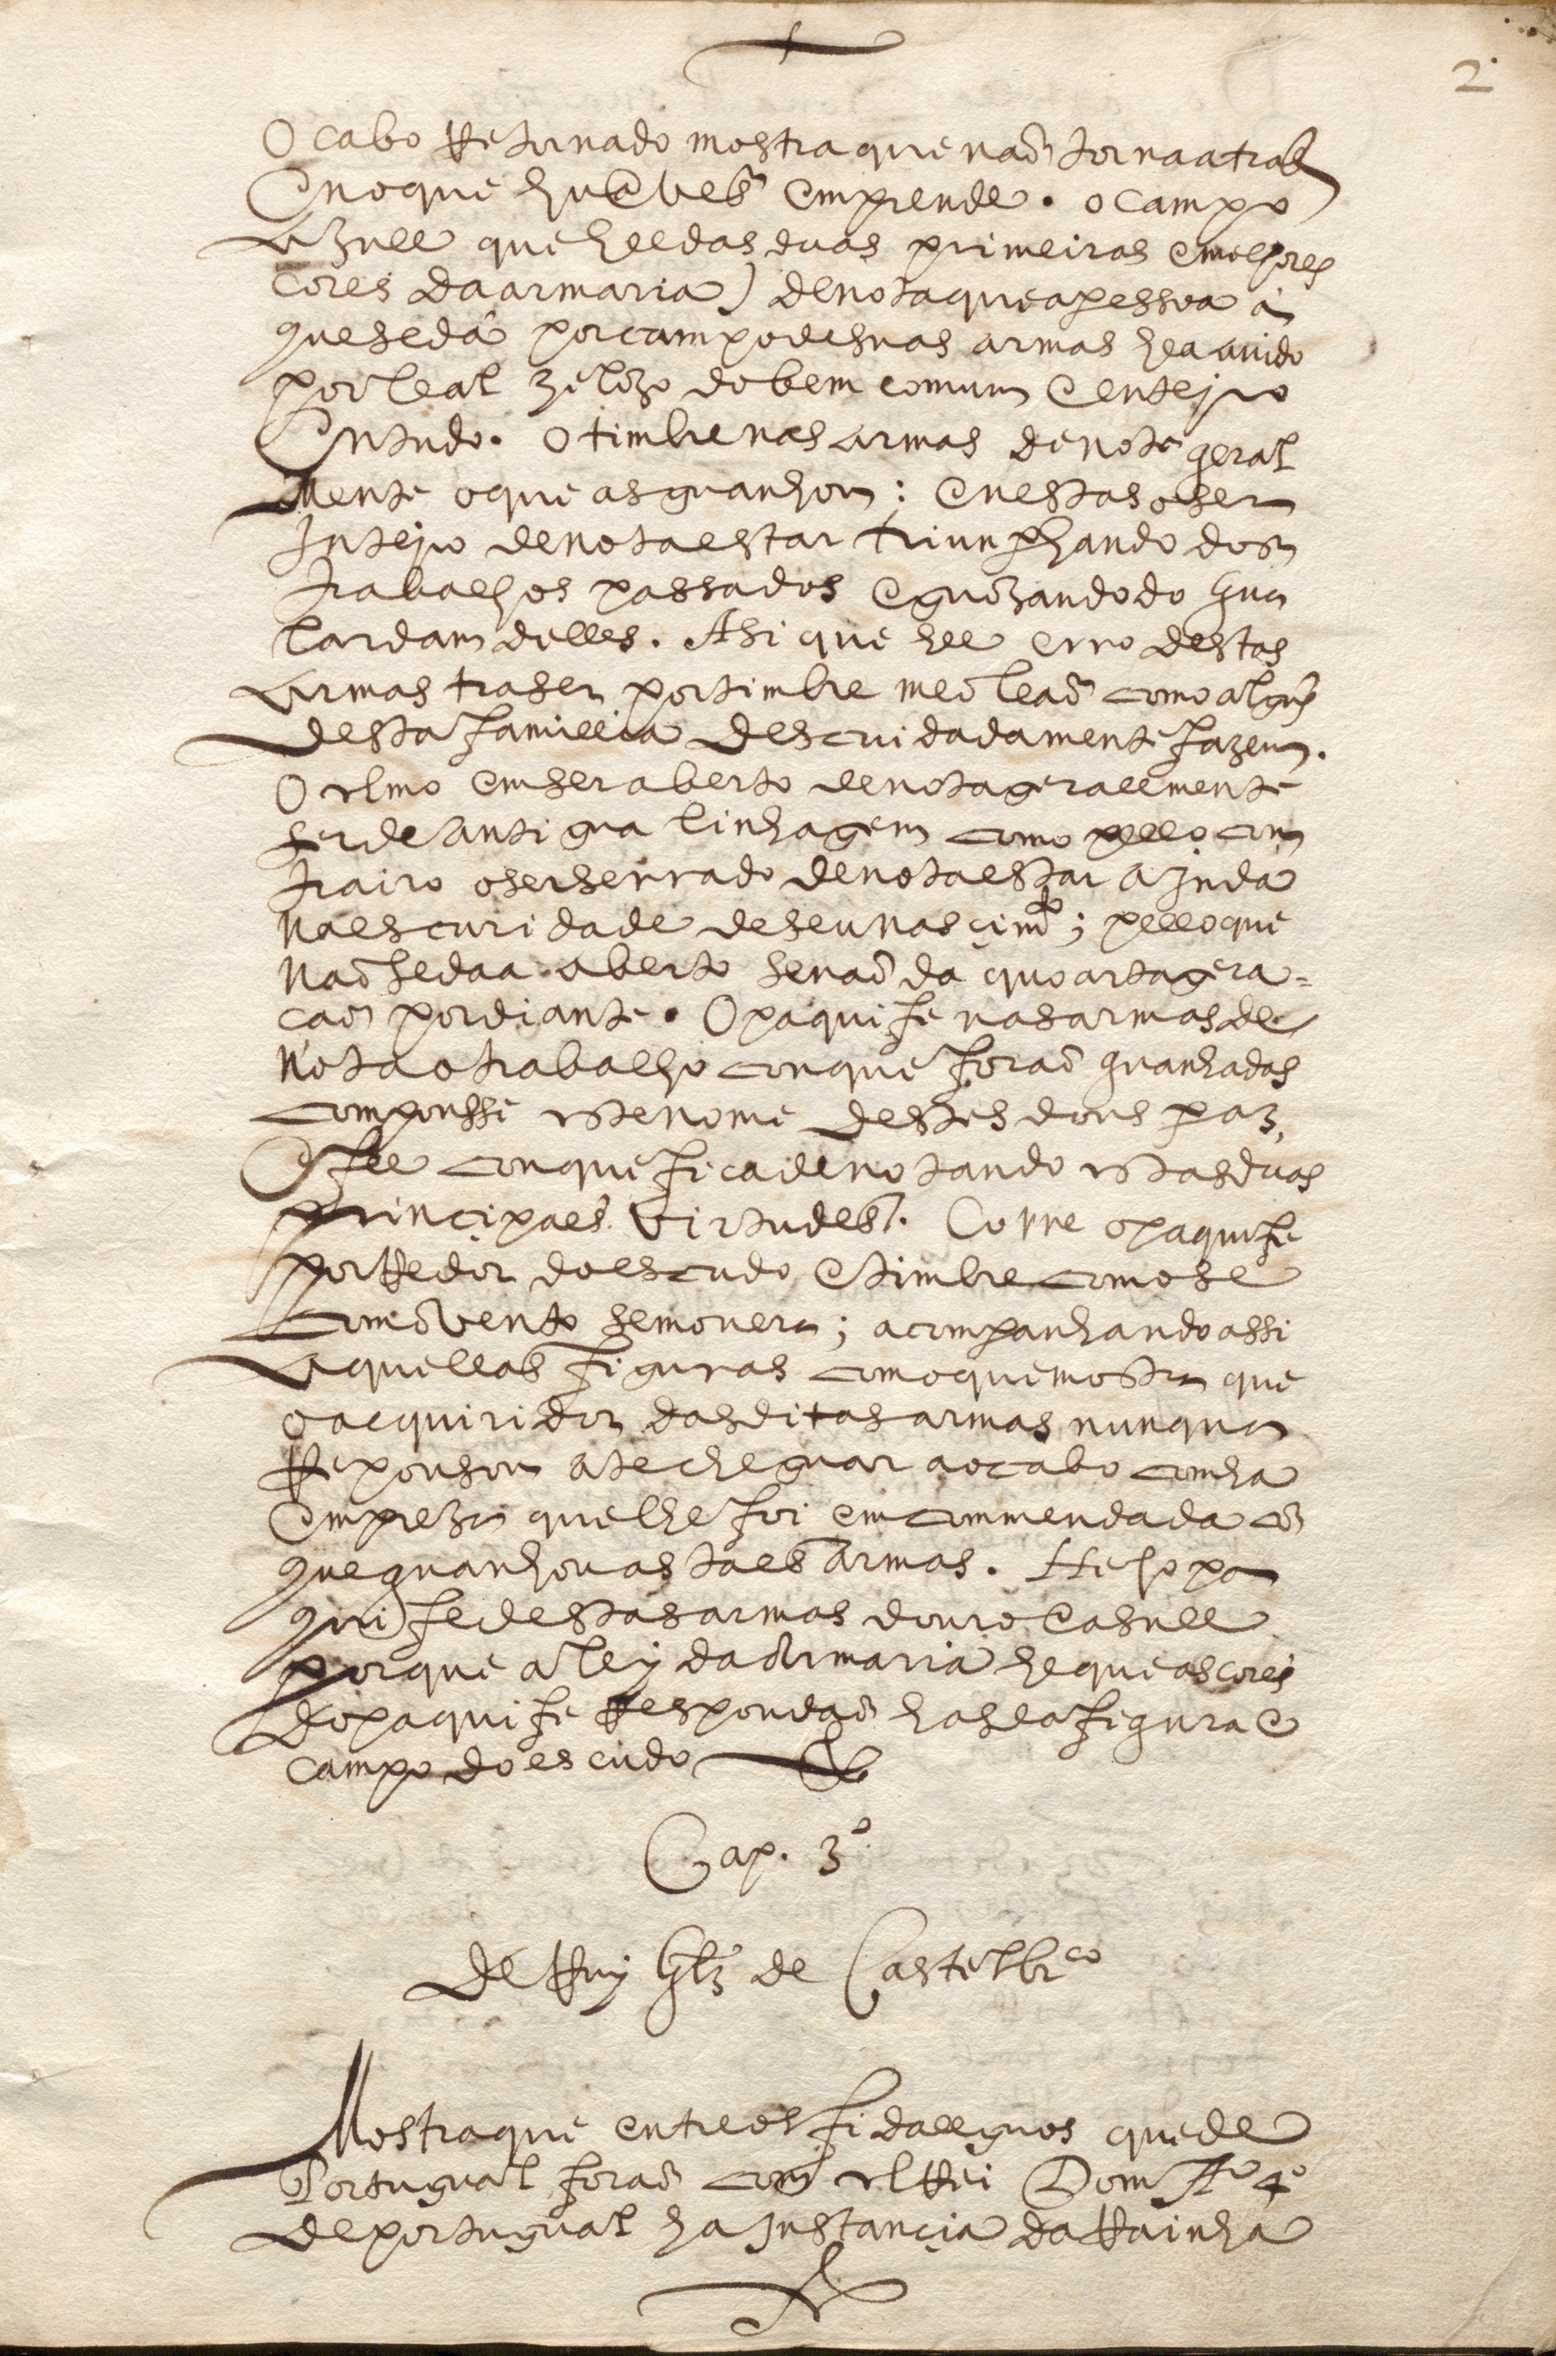 2
O cabo Retornado mostra que naõ torna atras
Em o que hũa ves emprende . o campo
Azull que he das duas primeiras e melhores
cores da armaria ) denota que a pessoa a
que se dâ por campo de suas armas he auido
por leal zelozo do bem comum e enteiro
Em tudo . O timbre nas armas denota geral
Mente o que as guanhou : E nestas o ser
Inteiro denota estar triumphando dos
trabalhos passados e guozando do gua
lardam delles . Asi que he erro destas
Armas traser por timbre meo leaõ como algũs
desta famillia descuidadamente fazem .
O elmo em ser aberto denota gerallmente
ser de antigua linhagem como pello con
trairo o ser serrado denota estar ainda
na escuridade de seu nascim.to ; pello que
naõ se daa aberto senaõ da quoarta gera=
caõ por diante . O paquife nas armas de
Nota o trabalho con que foraõ guanhadas
compousse este nome destes dous paz,
e fee con que fica denotando estas duas
principaes virtudes . Corre o paquife
por Redor do escudo e timbre como se
com o vento se mouera ; acompanhando assi
aquellas figuras como que mostra que
o acquiridor das ditas armas nunqua
Repousou ate cheguar ao cabo com ha
Empreza que lhe foi emcommendada cõ
que guanhou as taes armas . He ho pa
quife destas armas douro e asull
porque a ley da armaria he que as cores
do paquife Respondaõ has da figura e
campo do escudo
Cap. 3º
De Ruy Glz de Castelbr.co
Mostra que entre os fidallguos que de
Portugual foraõ com el Rei Dom Aº 4º
de portugual ha Instançia da Rainha